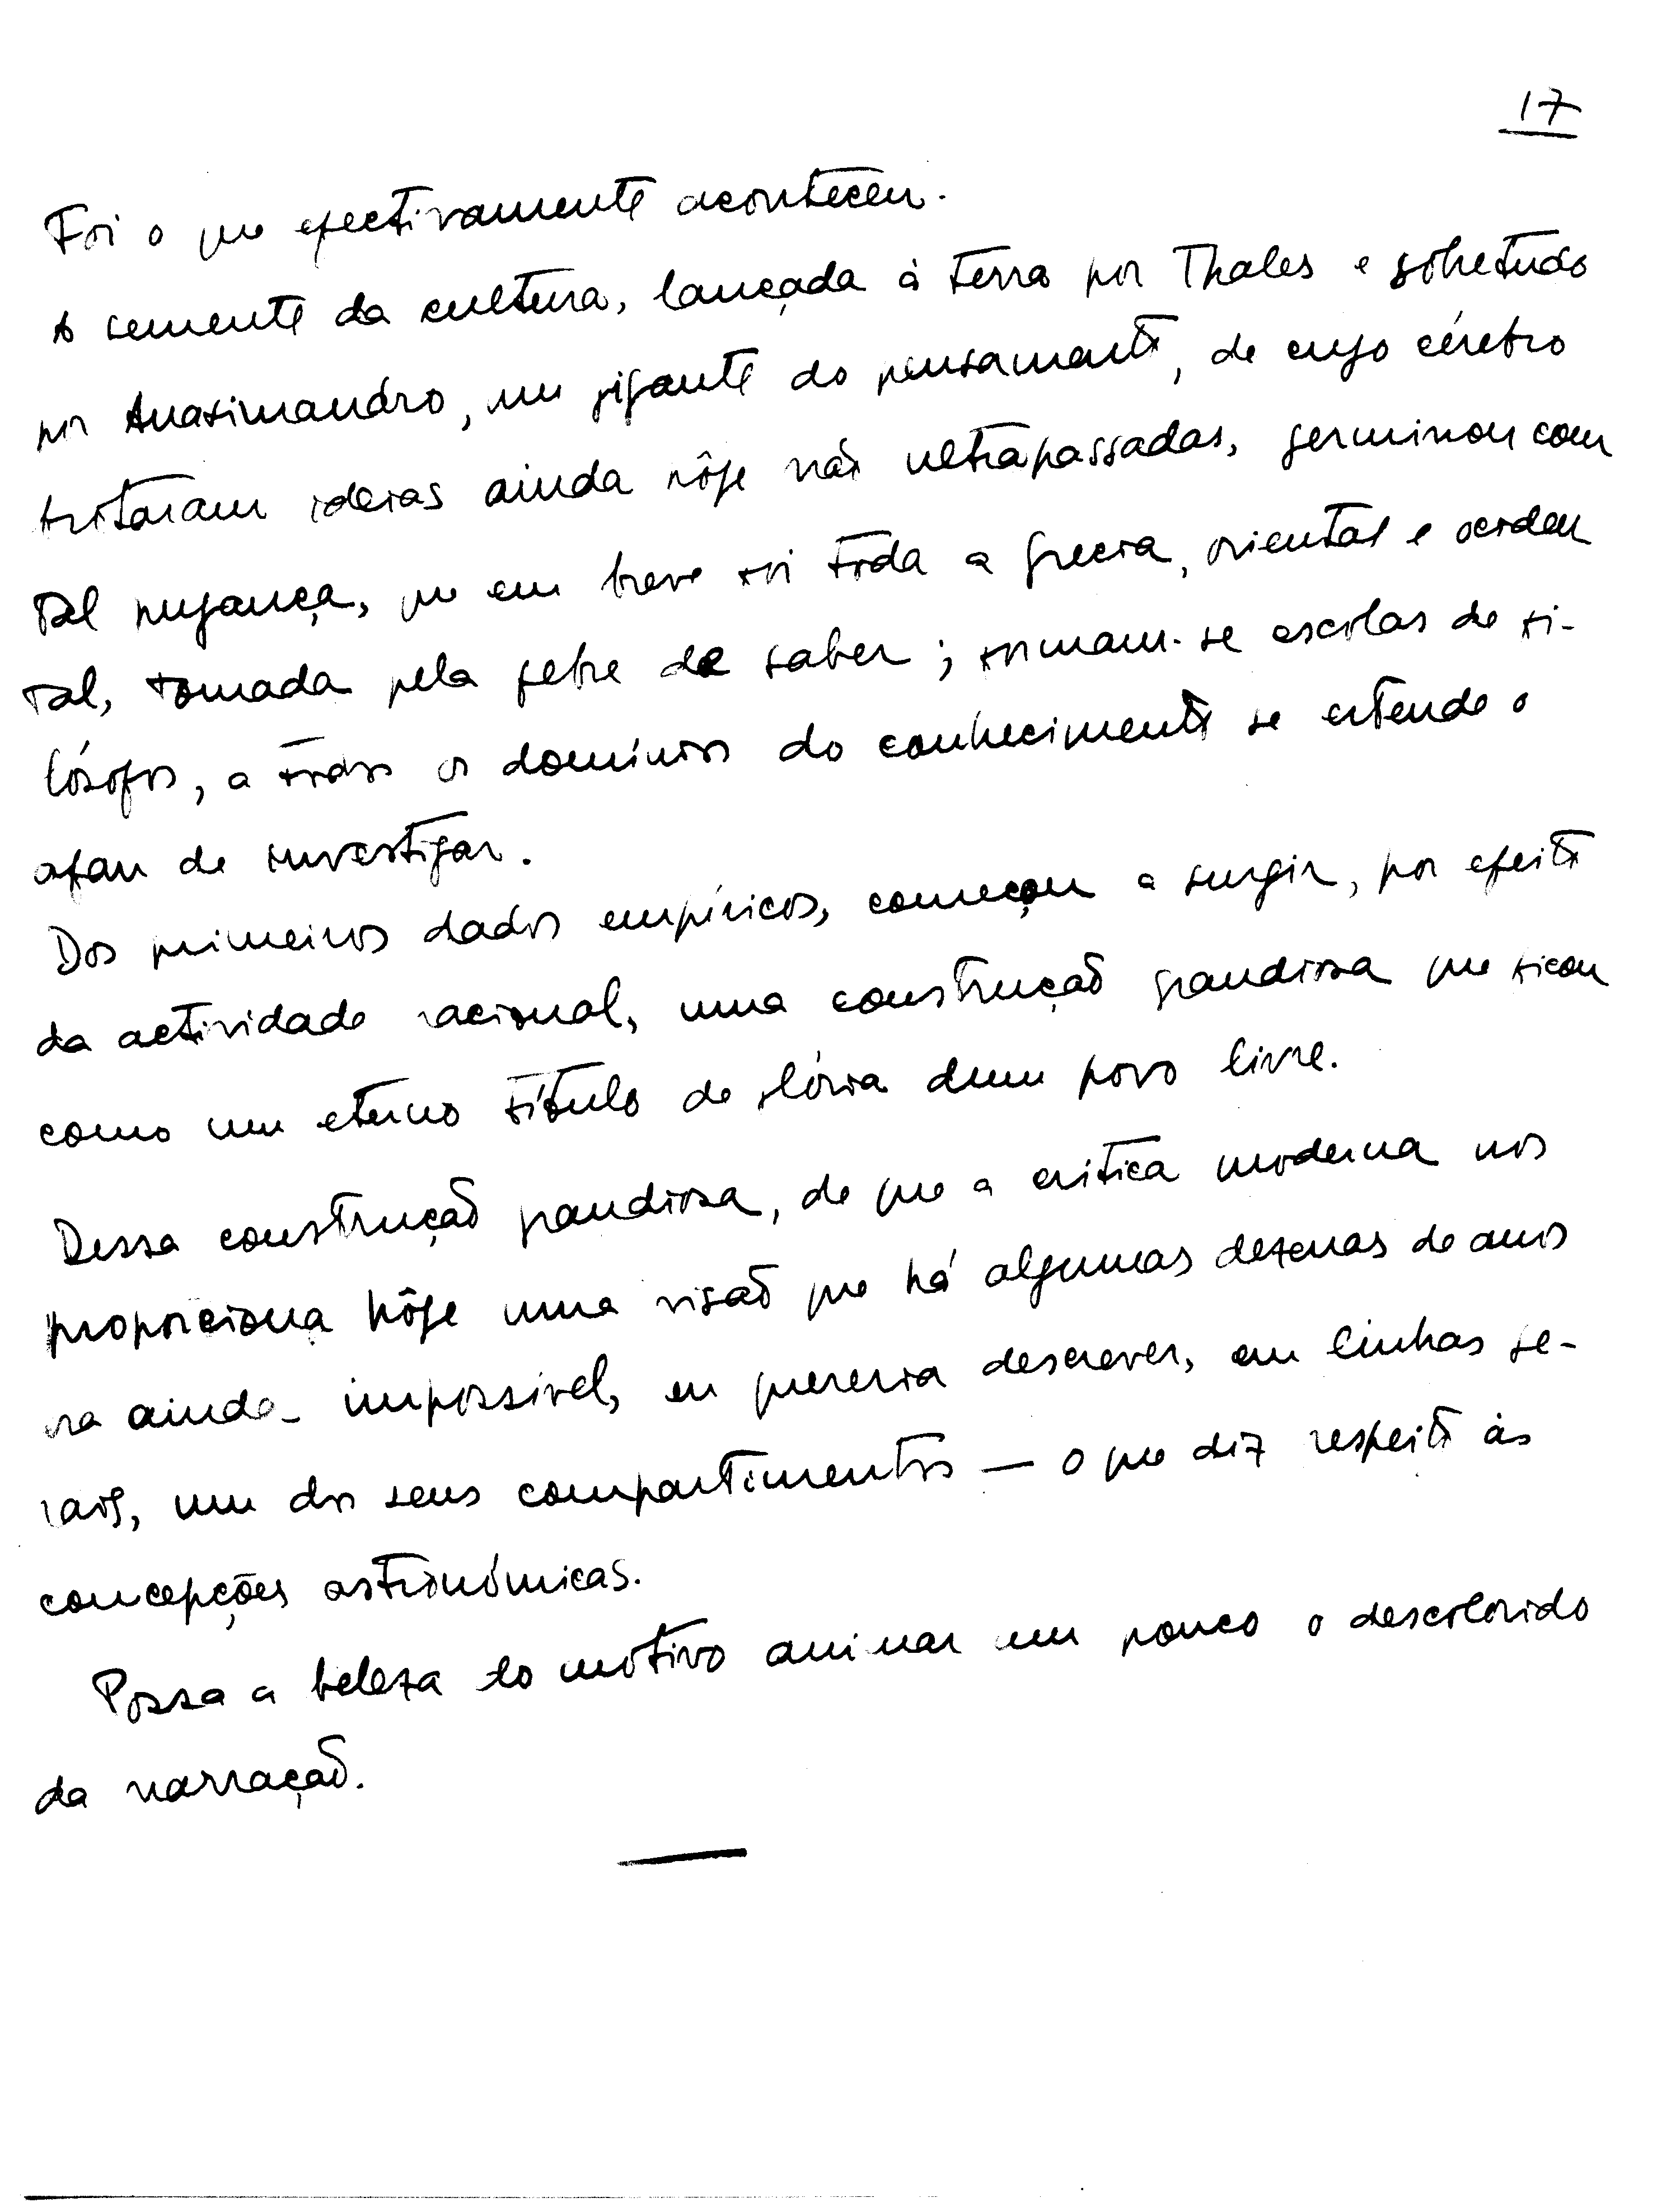 17
Foi o que efectivamente aconteceu.
A semente da cultura, lançada à terra por Thales e sobretudo
por Anaximandro, um gigante do pensamento, de cujo cérebro
brotaram ideias ainda hôje não ultrapassadas, germinou com
tal pujança, que em breve foi tôda a Grecia, oriental e ociden
tal, tomada pela febre de saber; formam-se escolas de fi-
lósofos, a todos os domínios do conhecimento se estende o
afan de investigar.
Dos primeiros dados empíricos, começou a surgir, por efeito
da actividade racional, uma construção grandiosa que ficou
como um eterno título de glória dum povo livre.
Dessa construção grandiosa, de que a critica moderna nos
proporciona hôje uma visão que há algumas dezenas de anos
era ainda impossível, eu quereria descrever, em linhas ge-
rais, um dos seus compartimentos — o que diz respeito às
concepções astronómicas.
Possa a beleza do motivo animar um pouco o descolorido
da narração.